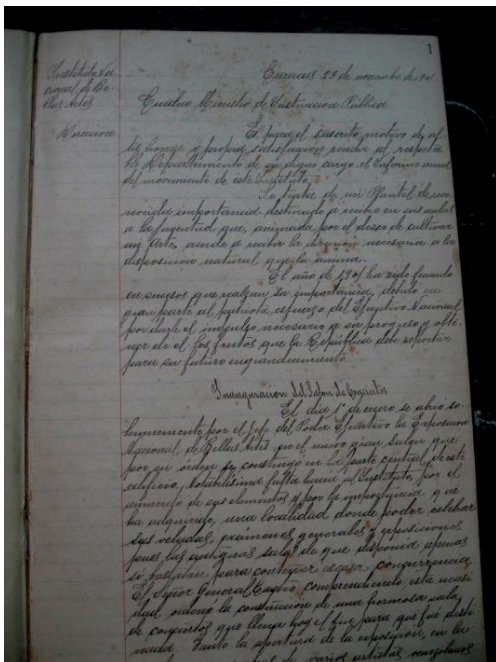 1
Instituto Na-
cional de Be-
llas Artes
Caracas 23 de noviembre de 1901
Ciudadano Ministro de Instrucción Pública
Dirección
Es para el suscrito motivo de
y propia satisfacción rendir al respeta
ble Departamento de su digno cargo el Informe anual
del movimiento de este Instituto.
Se trata de un Plantel de reco-
nocida importancia destinado a recibir en sus aulas
a la juventud que, animada por el deseo de cultivar
un Arte, acude a recibir la dirección necesaria a la
disposición natural que la anima.
El año de 1901 ha sido fecundo
en sucesos que realzan su importancia, debido en
gran parte al patriota esfuerzo del Ejecutivo Nacional,
por darle el impulso necesario a su progreso y obte-
ner de el los frutos que la República debe reportar
para su futuro engrandecimiento.
Inauguracion del Salon de Conciertos
El dia 1º de enero se abrió so-
lemnemente por el Jefe del Poder Ejecutivo la Exposición
Nacional de Bellas Artes en el nuevo gran salon que
por su orden se construyó en la parte central de este
edificio. Notabilísima falta hacia al Instituto, por el
aumento de sus elementos y por la importancia que
ha adquirido, una localidad donde poder celebrar
sus veladas, examenes generales y exposiciones
pues las antiguas salas de que disponia apenas
si bastaban para contener escasa concurrencia.
El Señor General Castro, comprendiendo esta necesi
dad ordenó la construcción de una hermosa sala
de conciertos que llena hoy el fin para que fué desti
nada. Tanto la apertura de la exposición, en la
de varios artistas venezolanos